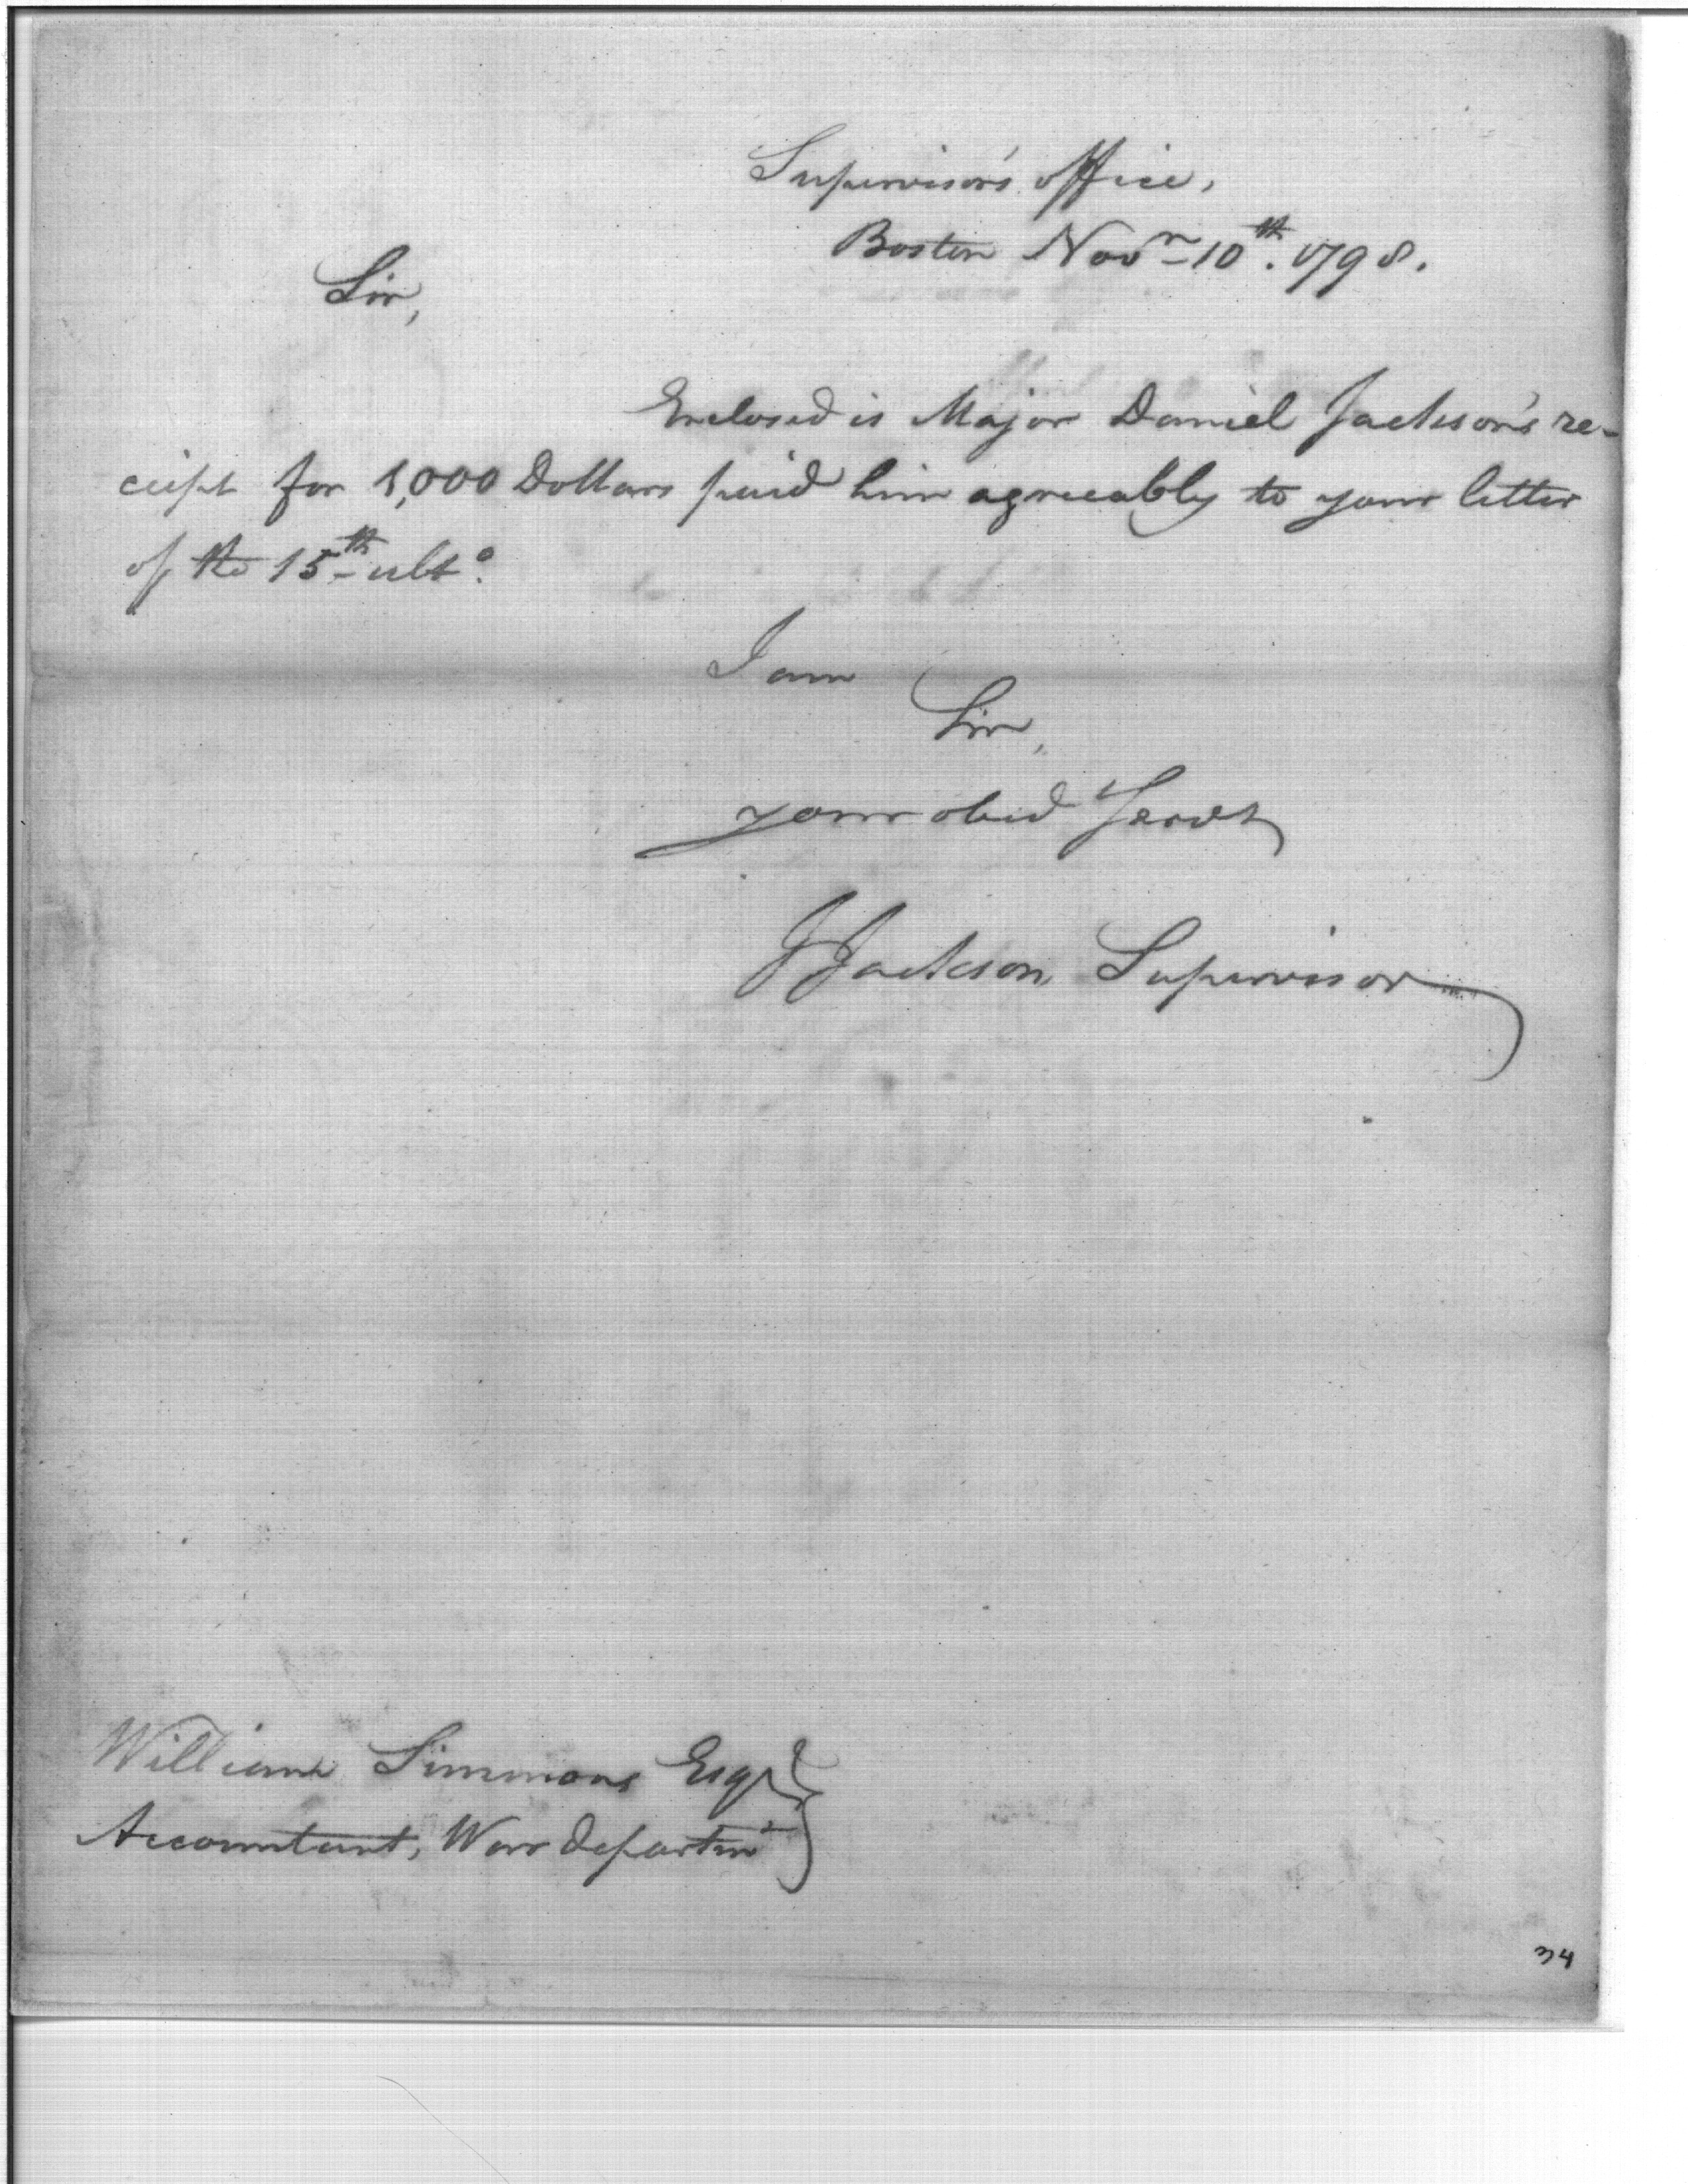 Supervisor's office,
Boston Novr 10th. 1798.
Sir,
Enclosed is Major Daniel Jackson's re-
ceipt for 1,000 Dollars paid him agreeably to your letter
of the 15th ulto.
I am
Sir,
your obed Servt
J Jackson Supervisor
William Simmons Esqr
Accountant, War departmt
34